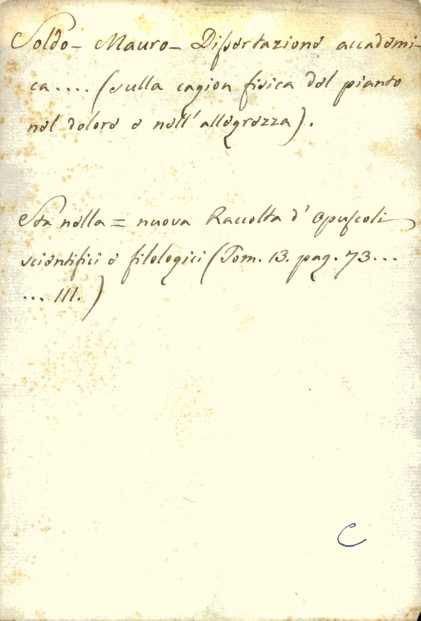 Soldo - Mauro - Dissertazione accademi-
ca.... (sulla cagion fisica del pianto
nel dolore e nell'allegrezza).
Sta nella = nuova Raccolta d'Opuscoli
scientifici e filologici (Tom. 13. pag. 73...
... 111.)
C